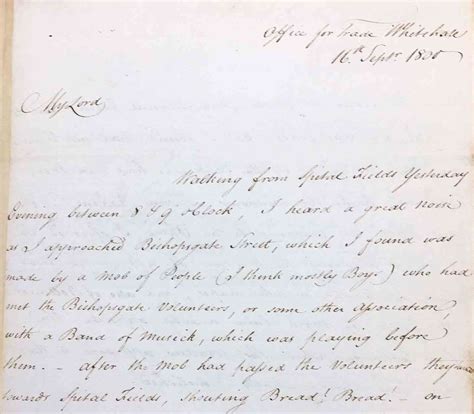 Office for Trade Whitehall
16th Septr. 1800
My Lord
Walking from Spital Fields Yesterday
Evening between 8 & 9 o'Clock, I heard a great noise
as I approached Bishopsgate Street, which I found was
made by a Mob of People (I think mostly Boys) who had
met the Bishopsgate Volunteers, or some other Association,
with a Band of Musick, which was playing before
them. – After the Mob had passed the Volunteers they
towards Spital Fields, shouting Bread! Bread! – on